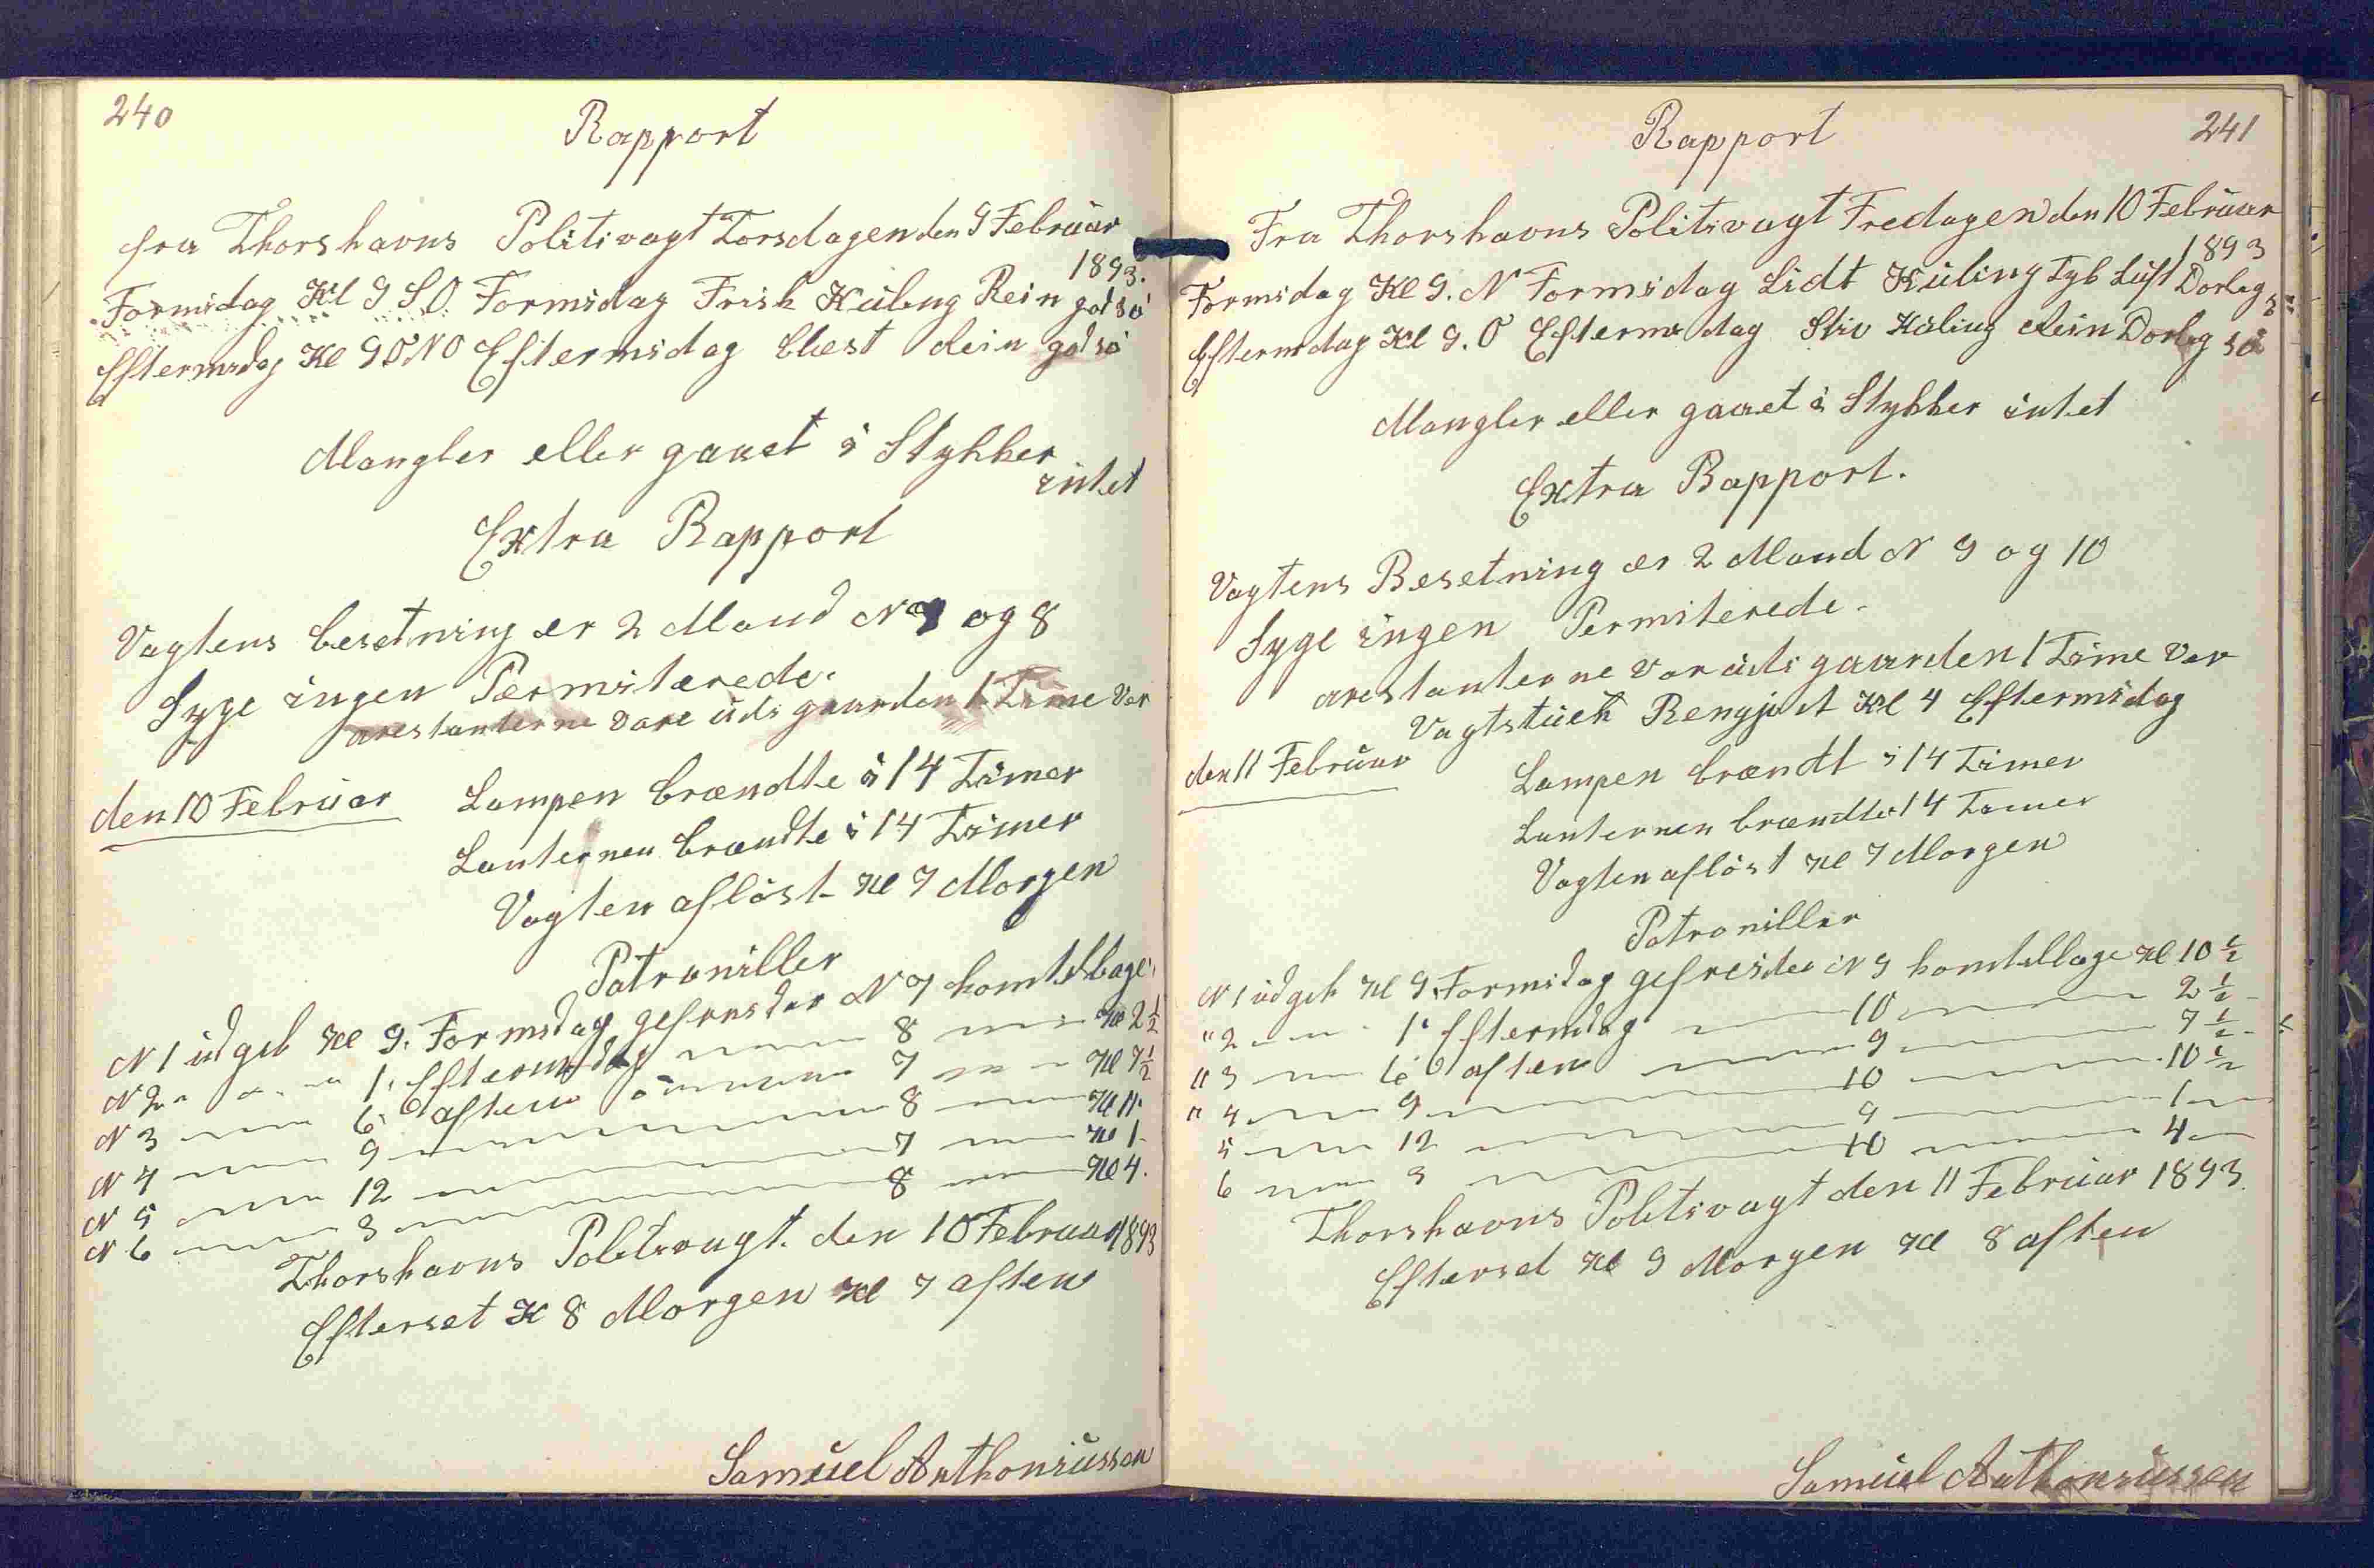 240
Rapport
fra Thorshavns Politivagt Torsdagen den 9 Februar
1893.
Formidag Kl 9 S.O. Formidag Frisk Kuling Rein god sö
Eftermidag Kl 9 ONO Eftermidag blæst Rein god sö
Mangler eller gaaet i Stykker
intet
Extra Rapport
Vagtens besetning er 2 Mand N 7 og 8
Syge ingen Permiterede.
arestanterne vare udi gaarden 1 Time Var
den 10 Februar
Lampen brændte i 14 Timer
Lanternen brændte i 14 Timer
Vagten aflöst Kl 7 Morgen
Patroniller
N 1 udgik Kl 9. Formidag gefreider N 7 kom tilbage
N 2 " " " 1. Eftermidag 8 Kl 2 1/2
N 3 6 aften 7 Kl 7 1/2
N 4 9 8 Kl 11
N 5 12 7 Kl 1
N 6 3 8 Kl 4.
Thorshavns Politivagt. den 10 Februar 1893
Efterset K 8 Morgen Kl 7 aften
Samuel Anthoniussen
Rapport
241
Fra Thorshavns Politivagt Fredagen den 10 Februar
1893
Formidag Kl 9. N Formidag Lidt Kuling Tyk Luft Dorlig sö
Eftermidag Kl 9. O Eftermidag Stiv Kuling Rein Dorlig sö
Mangler eller gaaet i Stykker intet
Extra Rapport.
Vagtens Besetning er 2 Mand N 9 og 10
Syge ingen Permiterede.
arestanterne Var udi gaarden 1 Time Var
Vagtstuen Rengjort Kl 4 Eftermidag
den 11 Februar
Lampen brændt i 14 Timer
Lanternen brændte i 14 Timer
Vagten aflöst Kl 7 Morgen
Patroniller
N 1 udgik Kl 9. Formidag gefreider N 9 kom tilbage Kl 10 1/2
" 2 " " 1. Eftermidag 10 2 1/2
" 3 6 aften 9 7 1/2
" 4 9 10 10 1/2
5 12 9 1
6 3 10 4
Thorshavns Politivagt den 11 Februar 1893.
Efterset Kl 9 Morgen Kl 8 aften
Samuel Anthoniussen